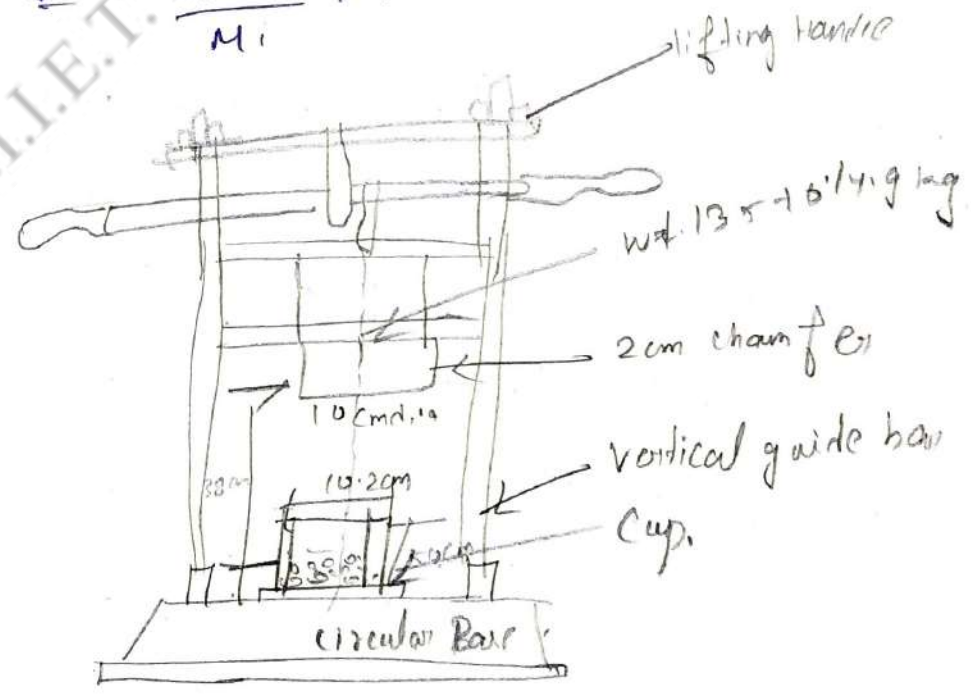 I.I.E.T.
M1
lifting Handle
wt. 13.5 to 14.9 kg
2cm chamfer
10 cm dia
Vertical guide bar
38cm
10.2cm
Cup.
5.0cm
Circular Base